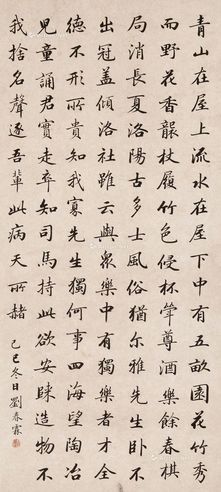 青山在屋上流水在屋下中有五畝園花竹秀
而野花香襲杖屨竹色侵杯斝尊酒樂餘春棋
局消長夏洛陽古多士風俗猶尔雅先生卧不
出冠蓋傾洛社雖云與眾樂中有獨樂者才全
德不形所貴知我寡先生獨何事四海望陶冶
兒童誦君實走卒知司馬持此欲安歸造物不
我捨名聲逐吾輩此病天所赭
己巳冬日劉春霖